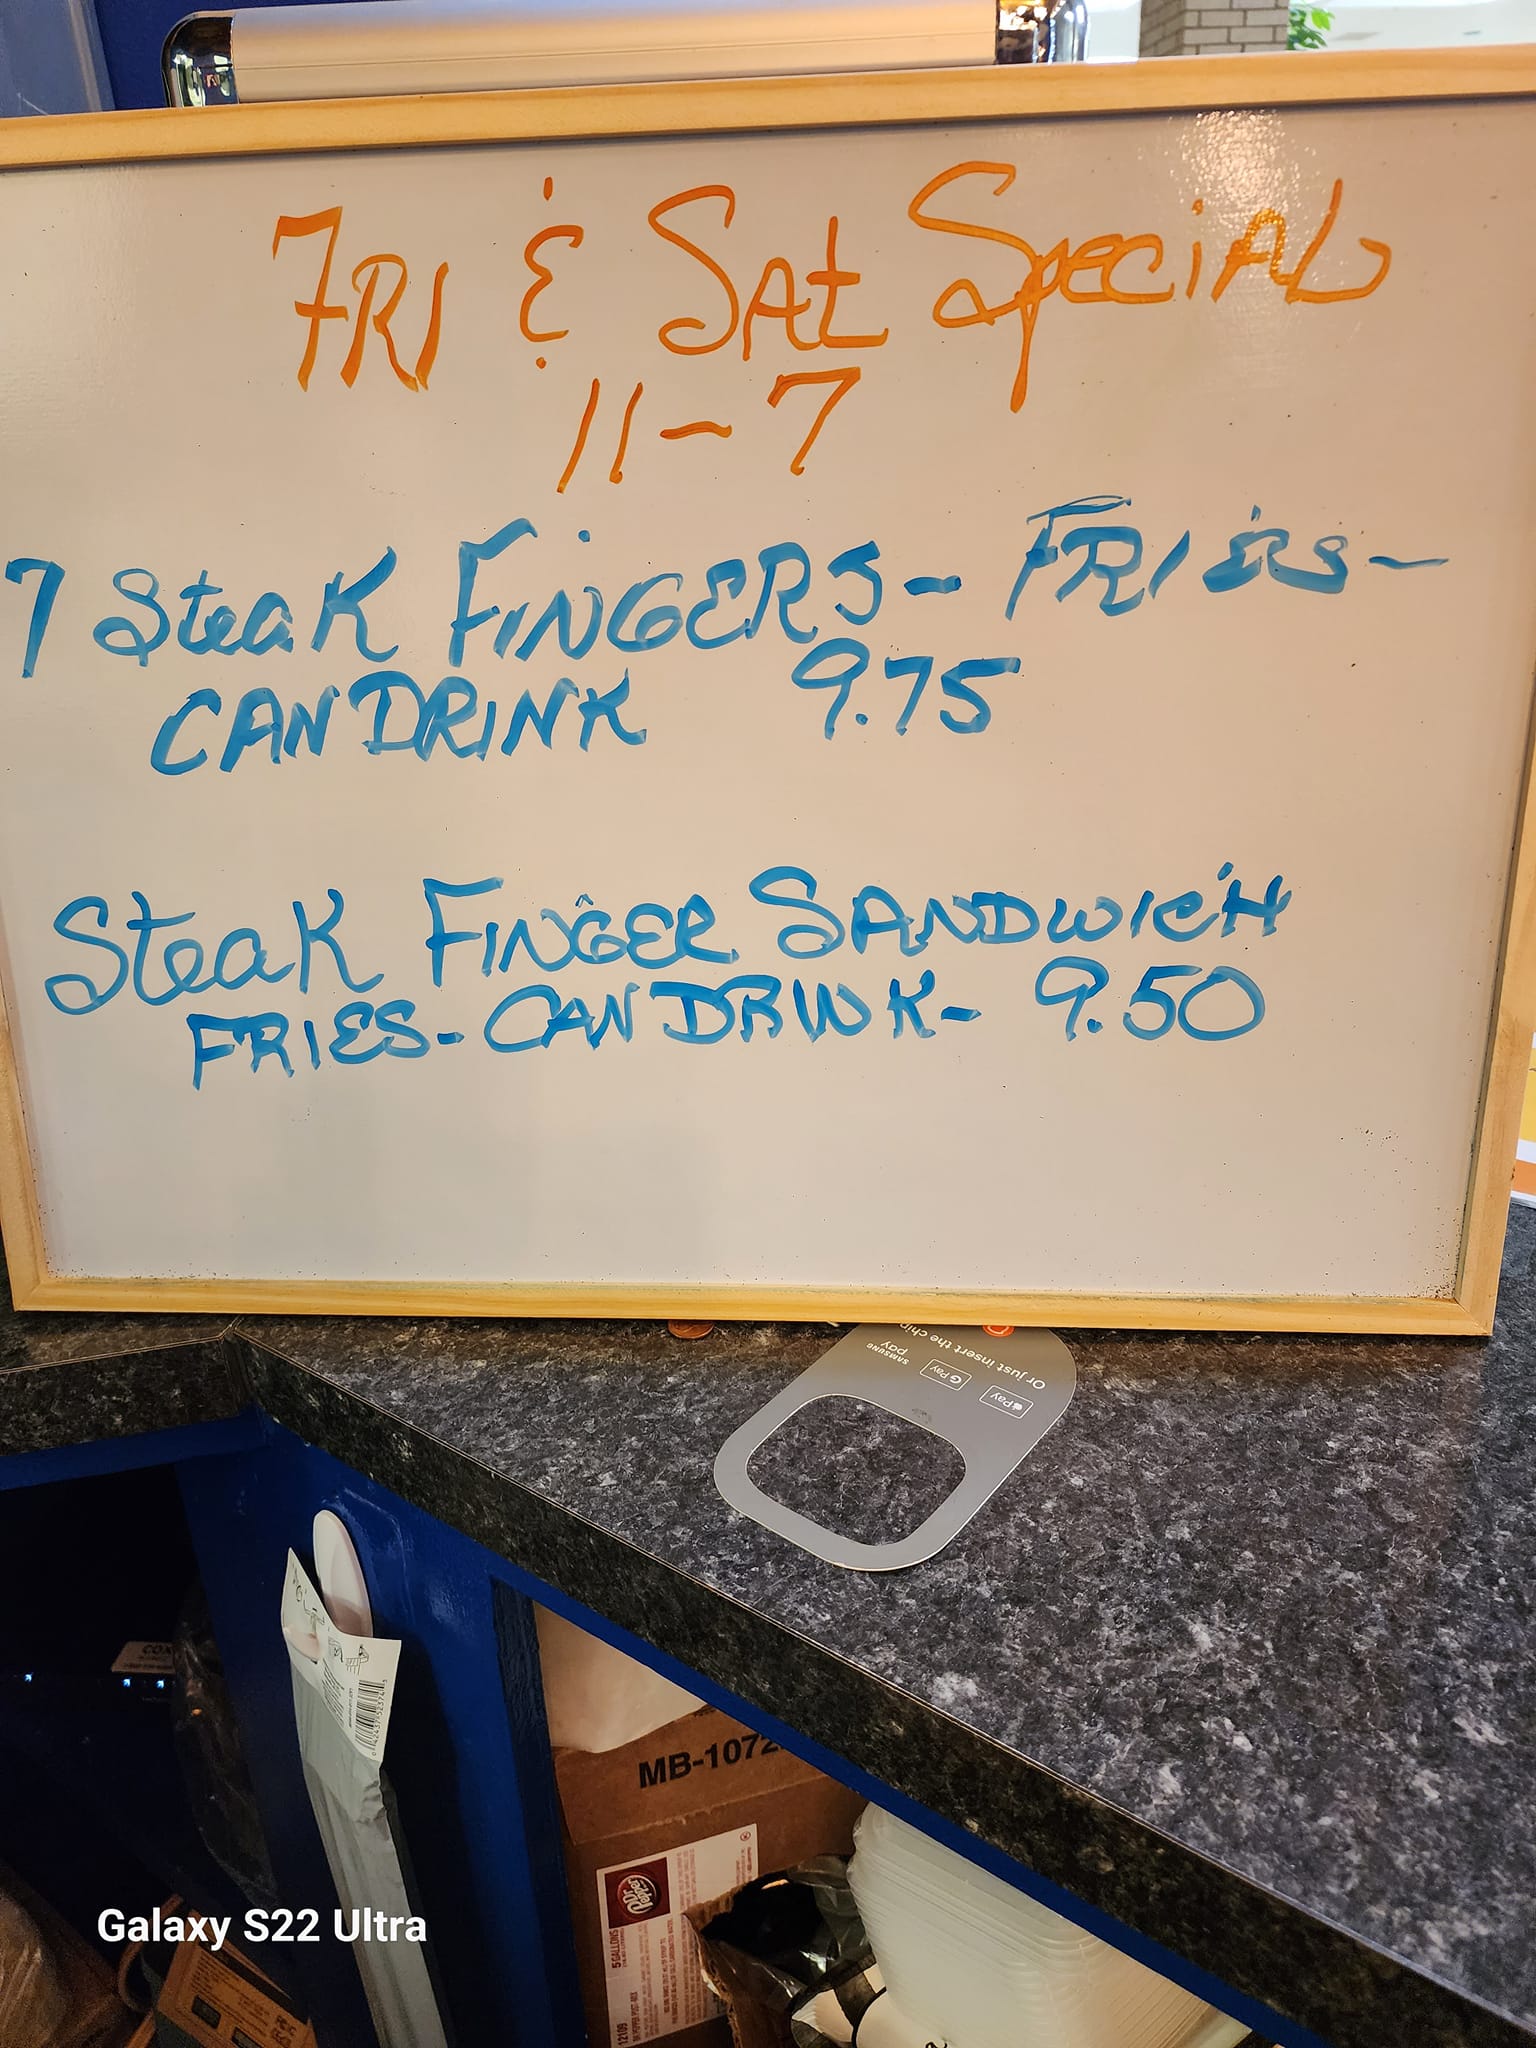 FRI & SAt SpeciAL
11-7
7 Steak FiNGERS - FRIES -
CAN DRINK 9.75
Steak FiNGER SANDWICH
FRIES - CAN DRINK - 9.50
Or just insert the chip
Pay
G Pay
SAMSUNG
pay
MB-1072
Dr Pepper
5 GALLONS
12109
Galaxy S22 Ultra